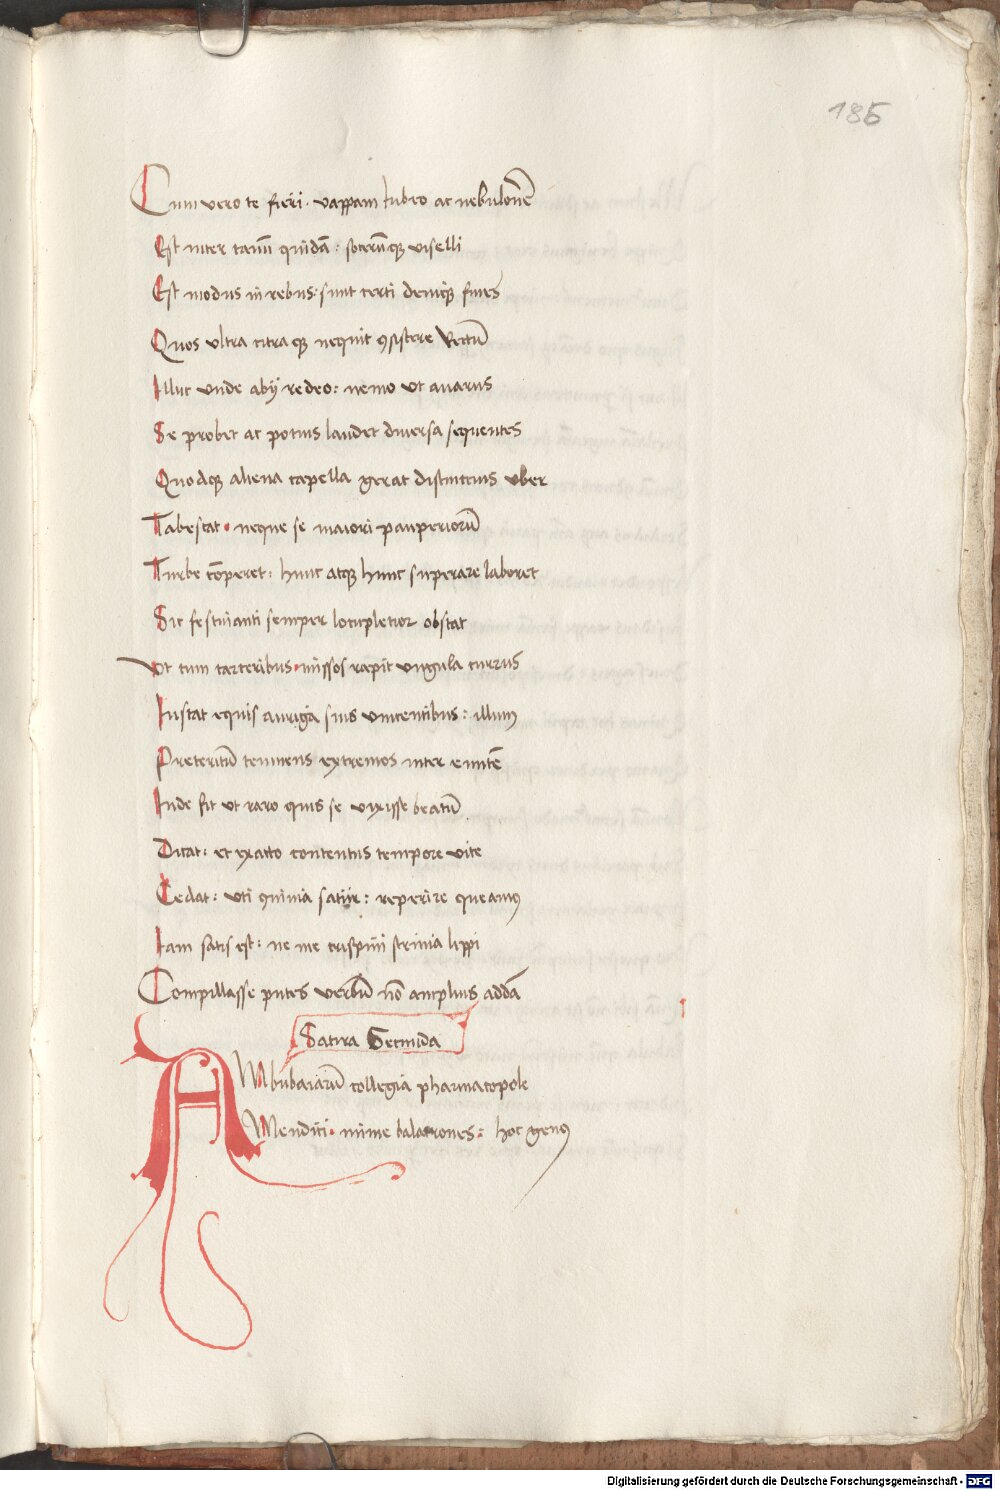 185
Cum vero te fieri · vappam iubeo ac nebulonē
Est inter tanaī quidā : socerūqꝫ viselli
Est modus in rebus : sunt certi deniqꝫ fines
Quos ultra citraqꝫ nequit ꝯsistere Rectū
Illuc unde abij redeo : nemo ut avarus
Se probet ac potius laudet diversa sequentes
Quodqꝫ aliena capella gerat distinctius uber
Tabescat · neque se maiori pauperiorū
Turbe cōperet : hunc atqꝫ hunc superare laboret
Sic festinanti semper locupletior obstat
Ut cum carceribus · missos rapit ungula currus
Instat equis auriga suis vincentibus : illum
Preteritū temnens extremos inter euntē
Inde fit ut raro quis se vixisse beatū
Dicat : et exacto contentus tempore vite
Cedat : uti ꝯuivia satur : reperire queamus
Iam satis est : ne me crispini scrinia lippi
Compillasse putes verbū nō amplius addā
Satira Secunda
AMbubaiarū collegia pharmacopole
Mendici · mime balatrones : hoc genus
Digitalisierung gefördert durch die Deutsche Forschungsgemeinschaft - DFG